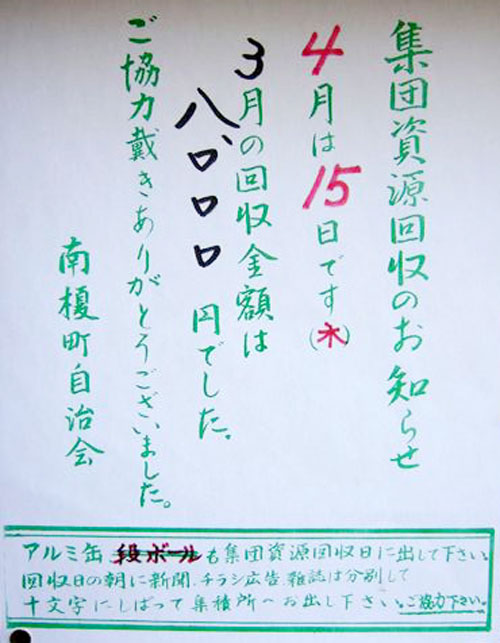 集団資源回収のお知らせ
4月は15日です(水)
3月の回収金額は
八、〇〇〇円でした。
ご協力戴きありがとうございました。
南榎町自治会
アルミ缶 段ボールも集団資源回収日に出して下さい
回収日の朝に新聞、チラシ広告、雑誌は分別して
十文字にしばって集積所へお出し下さい。ご協力下さい。